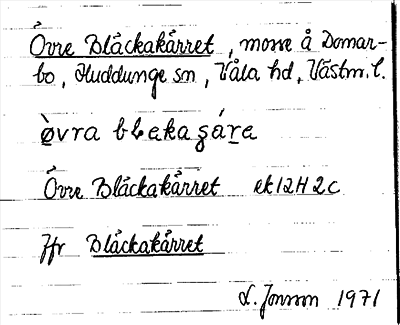 Övre Bläckakärret, mosse å Domar-
bo, Huddunge sn, Våla hd, Västm.l.
ø̀vra blɛkaʂáre
Övre Bläckakärret ek 12H 2c
Jfr Bläckakärret
L. Jonson 1971